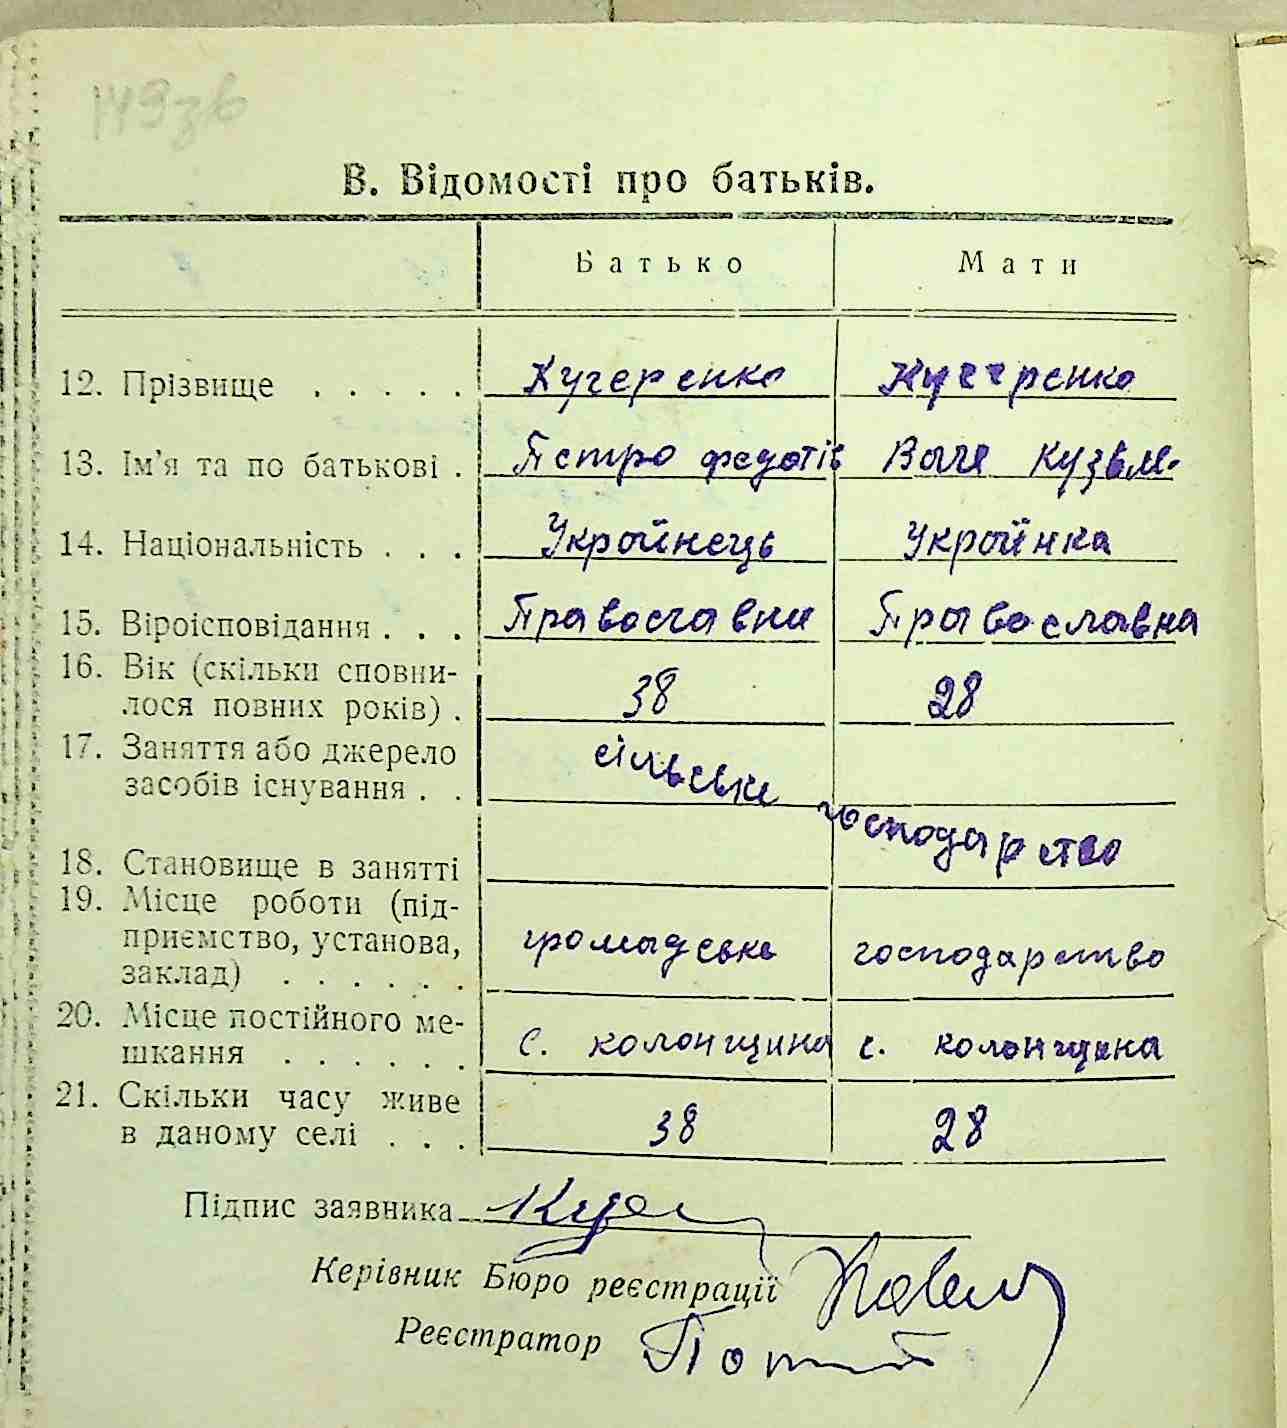 149зв
В. Відомості про батьків.
Батько Мати
12. Прізвище . . . . . Кучеренко Кучеренко
13. Ім'я та по батькові . Петро Федотів Кузьм.
14. Національність . . . Українець Українка
15. Віроісповідання . . . Православни Православна
16. Вік (скільки сповни-
лося повних років) . 38 28
17. Заняття або джерело
засобів існування . . сільське господарство
18. Становище в занятті
19. Місце роботи (під-
приємство, установа,
заклад) . . . . . . громадське господарство
20. Місце постійного ме-
шкання . . . . . . с. колонщина с. колонщина
21. Скільки часу живе
в даному селі . . . 38 28
Підпис заявника
Керівник Бюро реєстрації
Реєстратор